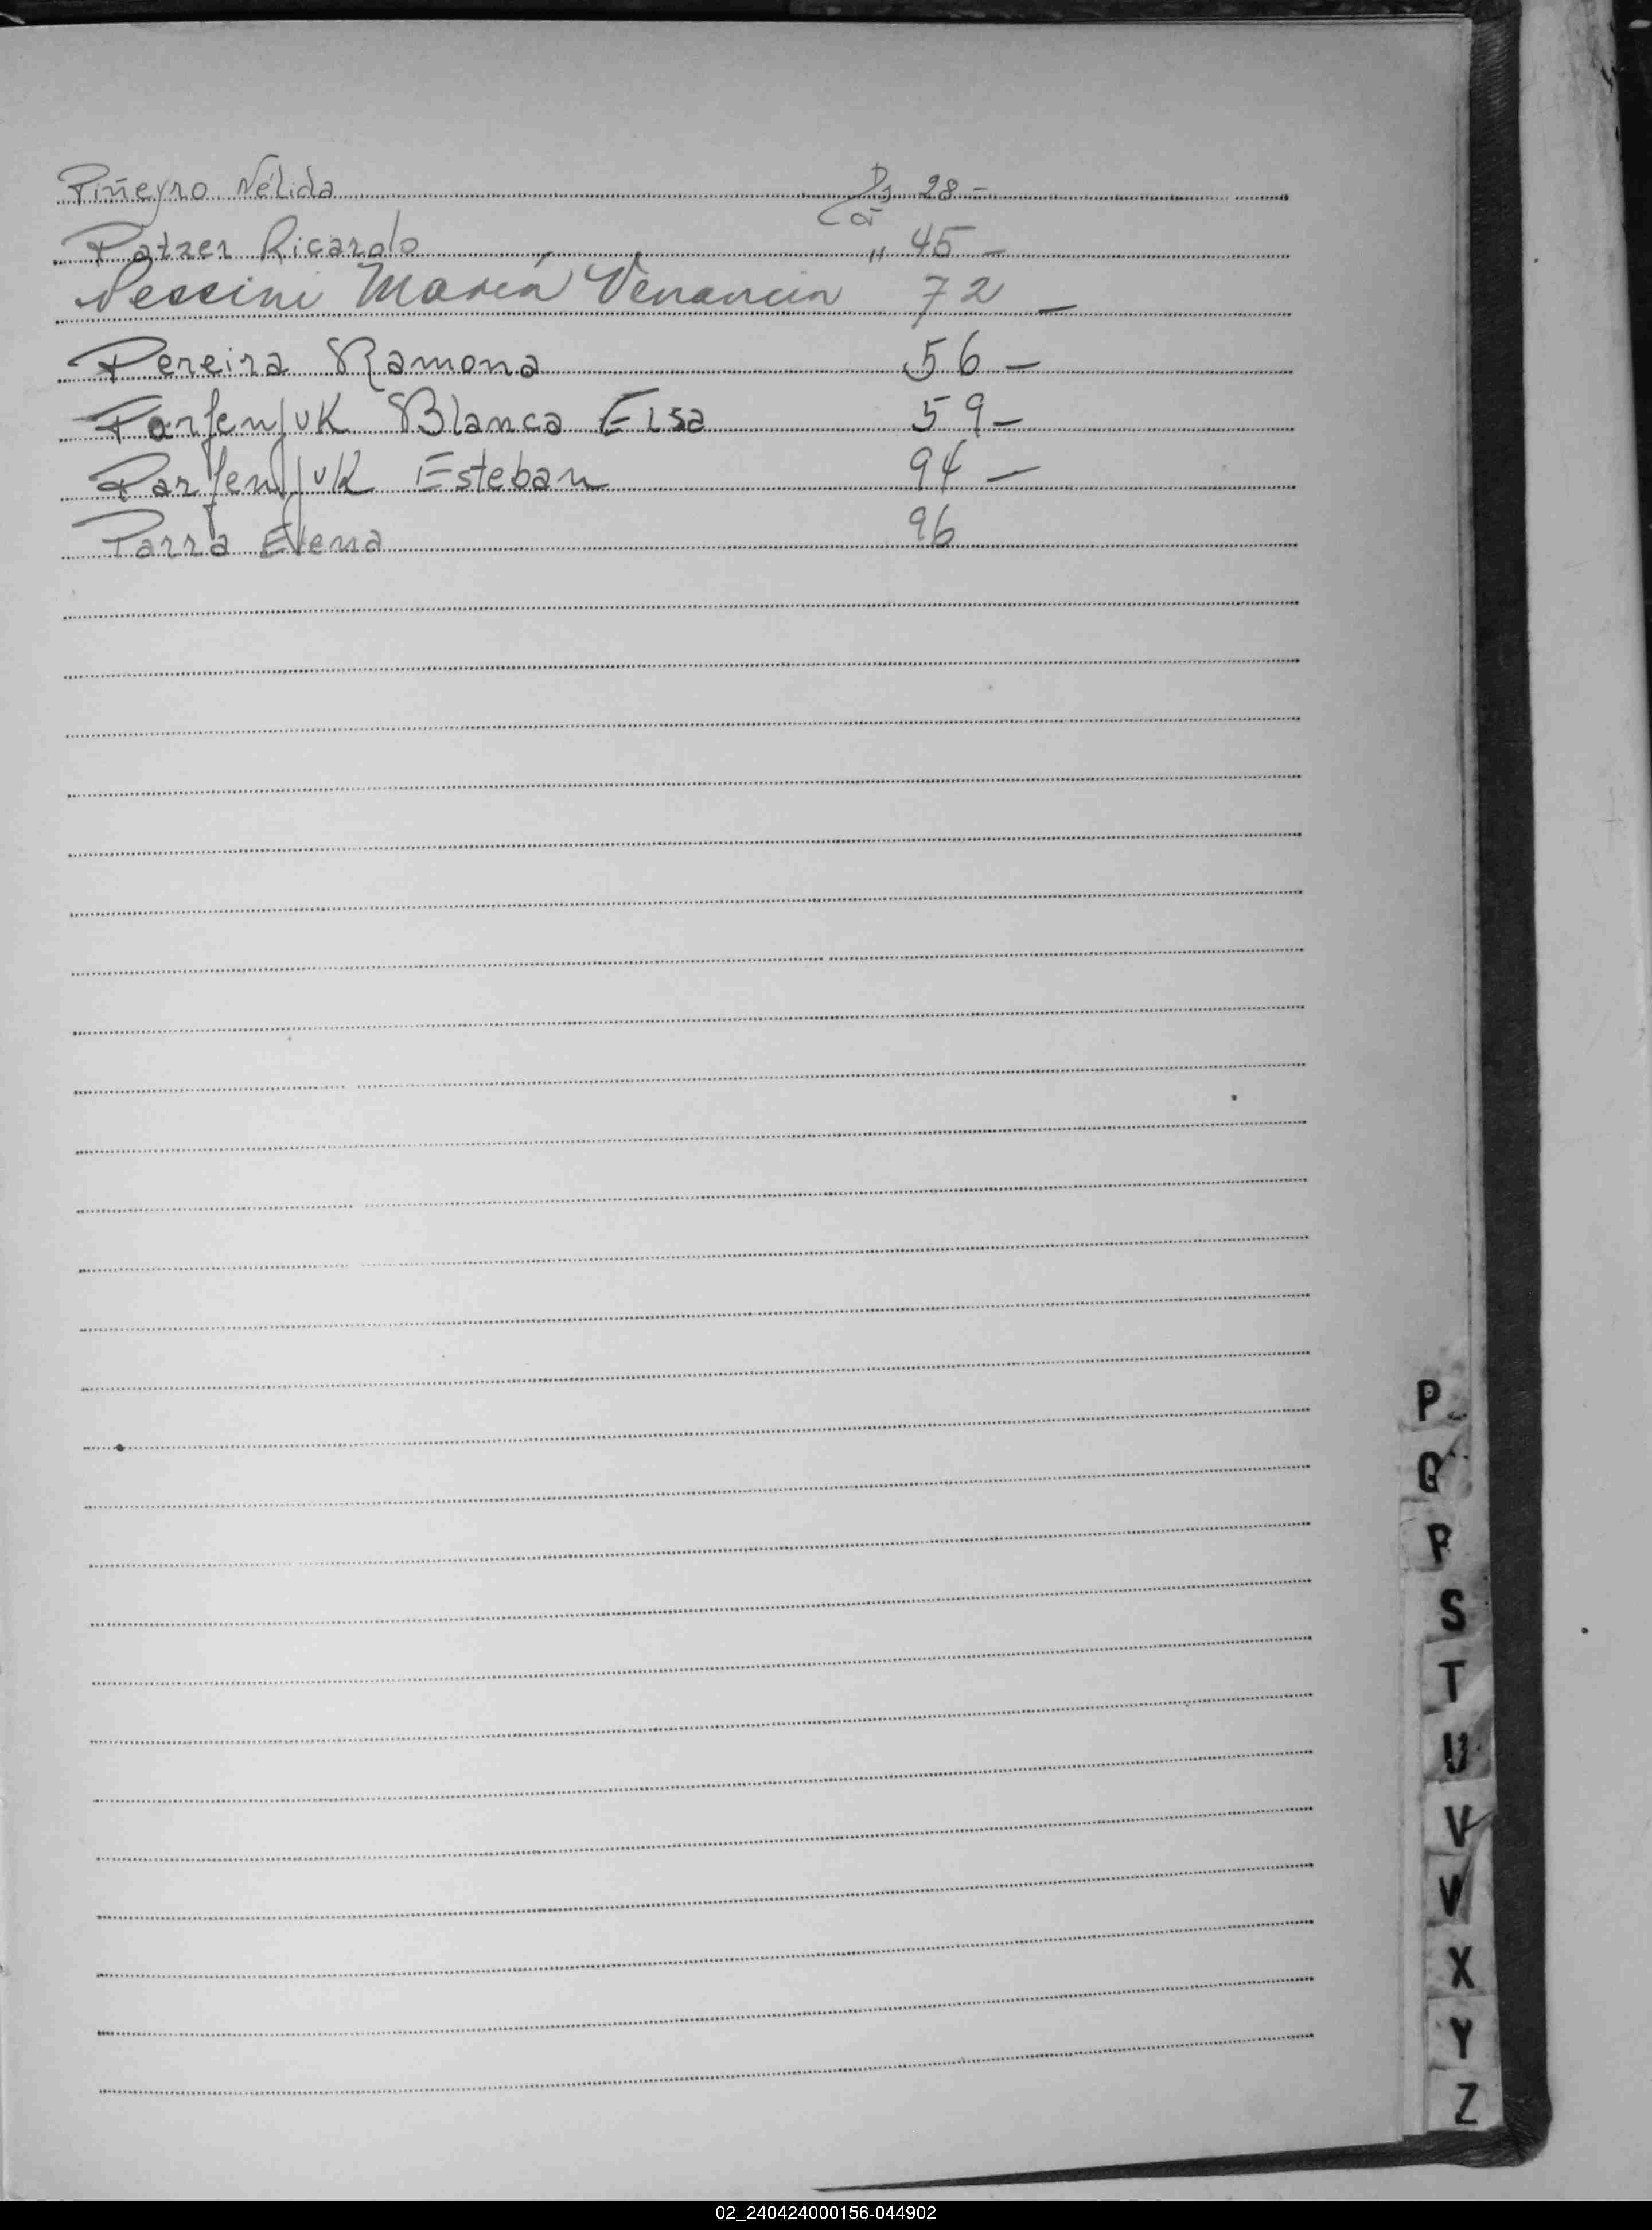 Piñeyro Nélida 28 -
Patzer Ricardo " 45 -
Pessini María Venancia 72 -
Pereira Ramona 56 -
Parfenjuk Blanca Elsa 59 -
Parfenjuk Esteban 94 -
Parra Elena 96
P
Q
R
S
T
U
V
W
X
Y
Z
02_240424000156-044902